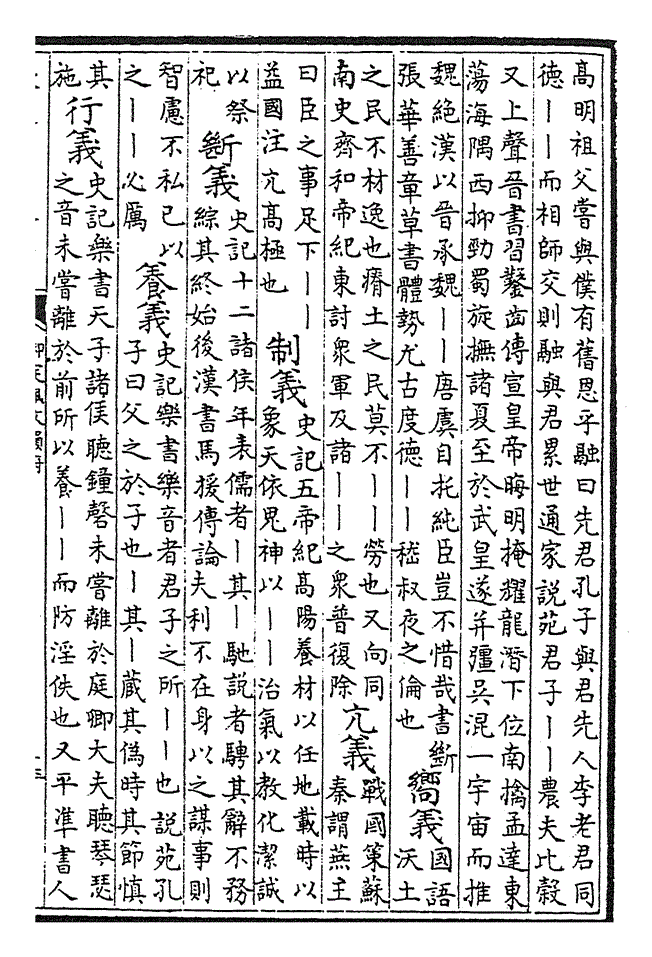 高明祖父嘗與僕有舊恩乎融曰先君孔子與君先人李老君同
德丨丨而相師交則融與君累世通家說苑君子丨丨農夫比穀
又上聲晉書習鑿齒傳宣皇帝晦明掩耀龍潛下位南擒孟達東
蕩海隅西抑勁蜀旋撫諸夏至於武皇遂并彊吳混一宇宙而推
魏絶漢以晉承魏丨丨唐虞自托純臣豈不惜哉書斷
張華善章草書體勢尤古度德丨丨嵇叔夜之倫也
嚮義
國語
沃土
之民不材逸也瘠土之民莫不丨丨勞也又向同
南史齊和帝紀東討衆軍及諸丨丨之衆普復除
亢義
戰國策蘇
秦謂燕主
曰臣之事足下丨丨
益國注亢高極也
制義
史記五帝紀高陽養材以任地載時以
象天依鬼神以丨丨治氣以教化潔誠
以祭
祀
斷義
史記十二諸侯年表儒者丨其丨馳說者騁其辭不務
綜其終始後漢書馬援傳論夫利不在身以之謀事則
智慮不私己以
之丨丨必厲
養義
史記樂書樂音者君子之所丨丨也說苑孔
子曰父之於子也丨其丨蔵其偽時其節慎
其
施
行義
史記樂書天子諸侯聽鐘磬未嘗離於庭卿大夫聽琴瑟
之音未嘗離於前所以養丨丨而防淫佚也又平準書人